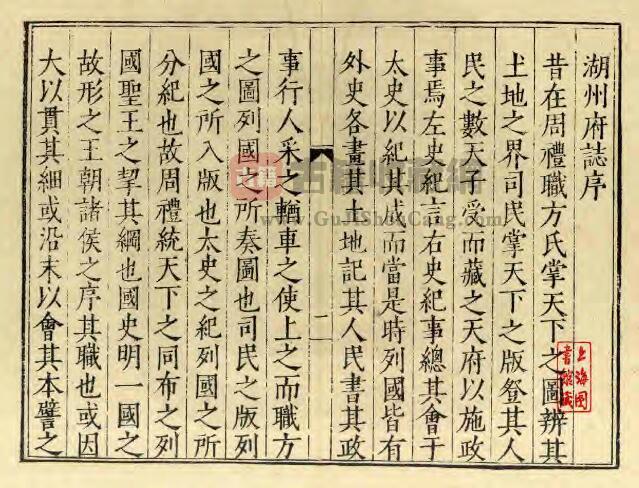 湖州府誌序
昔在周禮職方氏掌天下之圖辨其
土地之界司民掌天下之版登其人
民之數天子受而藏之天府以施政
事焉左史紀言右史紀事總其會于
太史以紀其成而當是時列國皆有
外史各畫其土地記其人民書其政
事行人采之輶車之使上之而職方
之圖列國之所奏圖也司民之版列
國之所入版也太史之紀列國之所
分紀也故周禮統天下之同布之列
國聖王之挈其綱也國史明一國之
故形之王朝諸侯之序其職也或因
大以貫其細或沿末以會其本譬之
上海圖
書館藏
www.GuJiShouCang.com